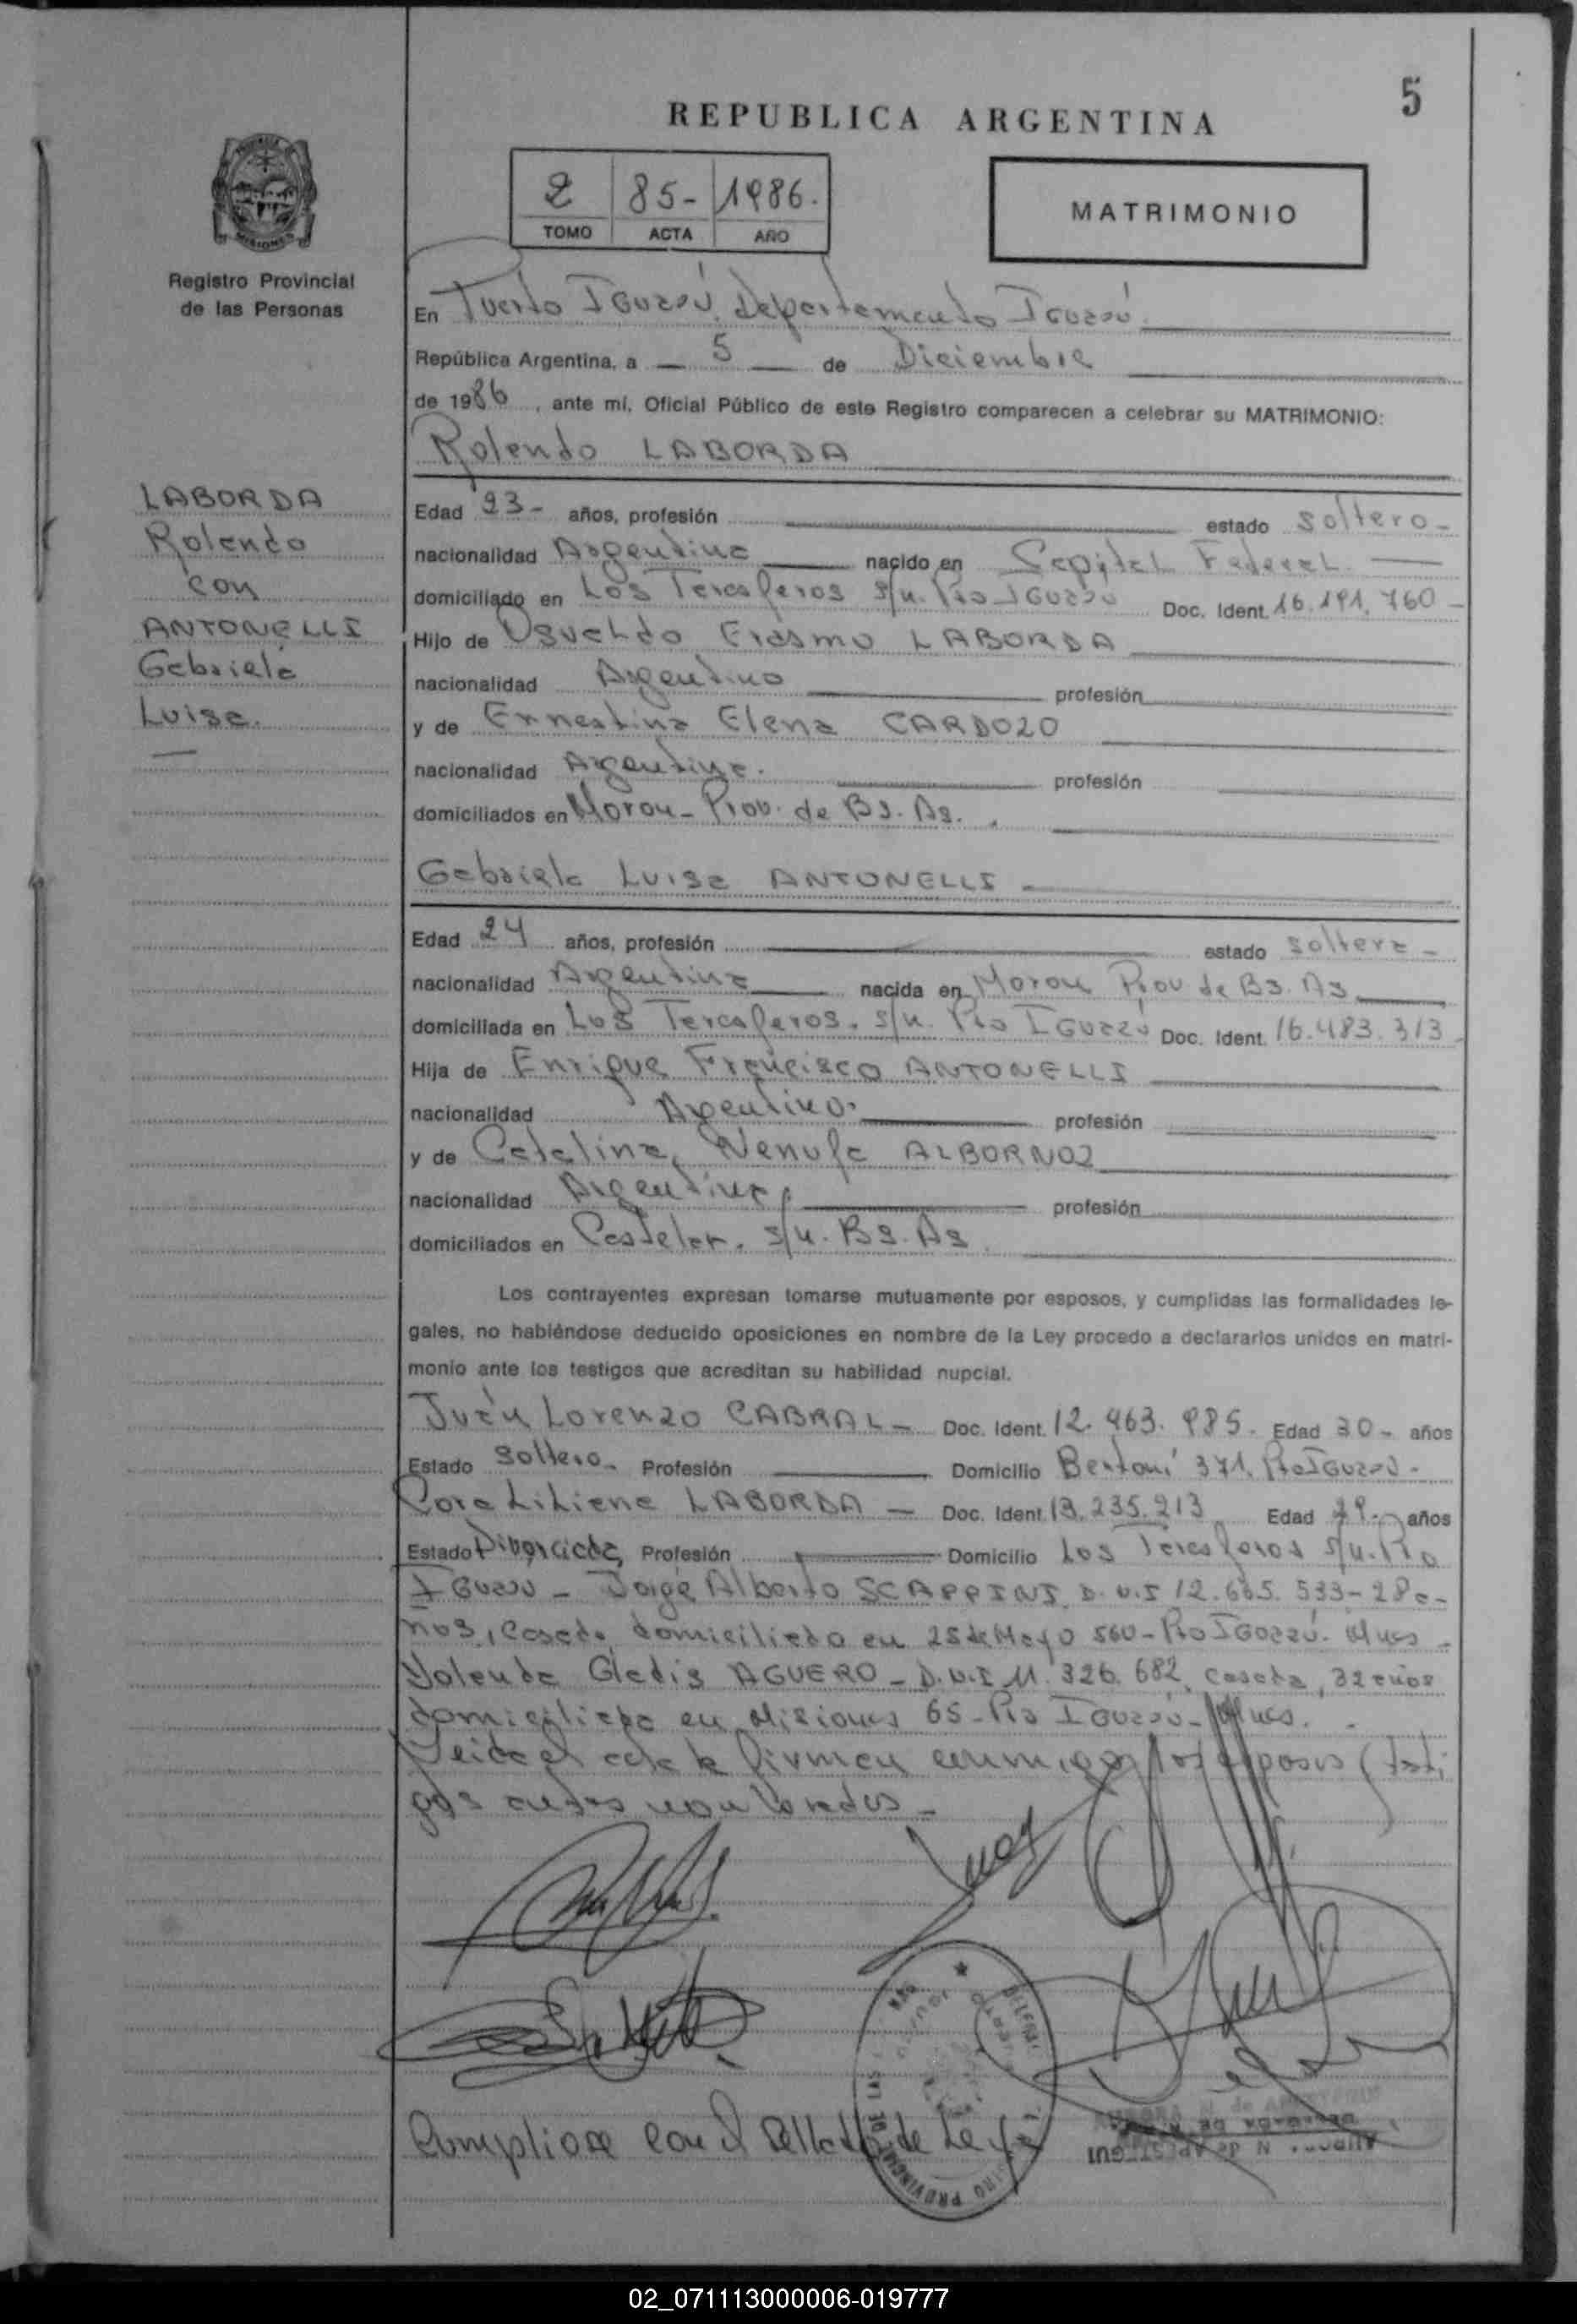 5
REPUBLICA ARGENTINA
2 85- 1986.
TOMO ACTA AÑO
MATRIMONIO
MISIONES
Registro Provincial
de las Personas
En Puerto Iguazú, Departamento Iguazú
República Argentina, a 5 de Diciembre
de 1986, ante mí, Oficial Público de este Registro comparecen a celebrar su MATRIMONIO:
Rolando LABORDA
LABORDA
Rolando
con
ANTONELLI
Gabriela
Luisa.
Edad 23- años, profesión estado soltero-
nacionalidad Argentina nacido en Capital Federal.
domiciliado en Los Tercaferos s/n. Pto Iguazú Doc. Ident. 16.191.760-
Hijo de Osvaldo Erasmo LABORDA
nacionalidad Argentino profesión
y de Ernestina Elena CARDOZO
nacionalidad Argentina. profesión
domiciliados en Moron- Prov. de Bs. As.
Gabriela Luisa ANTONELLI -
Edad 24 años, profesión estado soltera-
nacionalidad Argentina nacida en Moron Prov de Bs. As
domiciliada en Los Tercaferos. s/n. Pto Iguazú Doc. Ident. 16.483.313
Hija de Enrique Francisco ANTONELLI
nacionalidad Argentino. profesión
y de Catalina, Nenufa ALBORNOZ
nacionalidad Argentina, profesión
domiciliados en Castelar. s/n. Bs. As
Los contrayentes expresan tomarse mutuamente por esposos, y cumplidas las formalidades le-
gales, no habiéndose deducido oposiciones en nombre de la Ley procedo a declararlos unidos en matri-
monio ante los testigos que acreditan su habilidad nupcial.
Juan Lorenzo CABRAL- Doc. Ident. 12.463.985. Edad 30- años
Estado soltero. Profesión Domicilio Bertoni 371, Pto Iguazú-
Cora Liliana LABORDA - Doc. Ident. 13.235.213 Edad 29. años
Estado Divorciada, Profesión Domicilio Los Tercaferos s/n. Pto
Iguazú - Jorge Alberto SCAPPINI, D.N.I 12.665.533-28 a-
ños, casado domiciliado en 25 de Mayo 560- Pto Iguazú. Mnes-
Yolanda Gladis AGUERO - D.N.I 11.326.682, casada, 32 años
domiciliada en Misiones 65- Pto Iguazú- Mnes.
Leida el acta la firman conmigo los esposos y testi
gos antes nombrados-
Cumpliose con el sellado de Ley
02_071113000006-019777